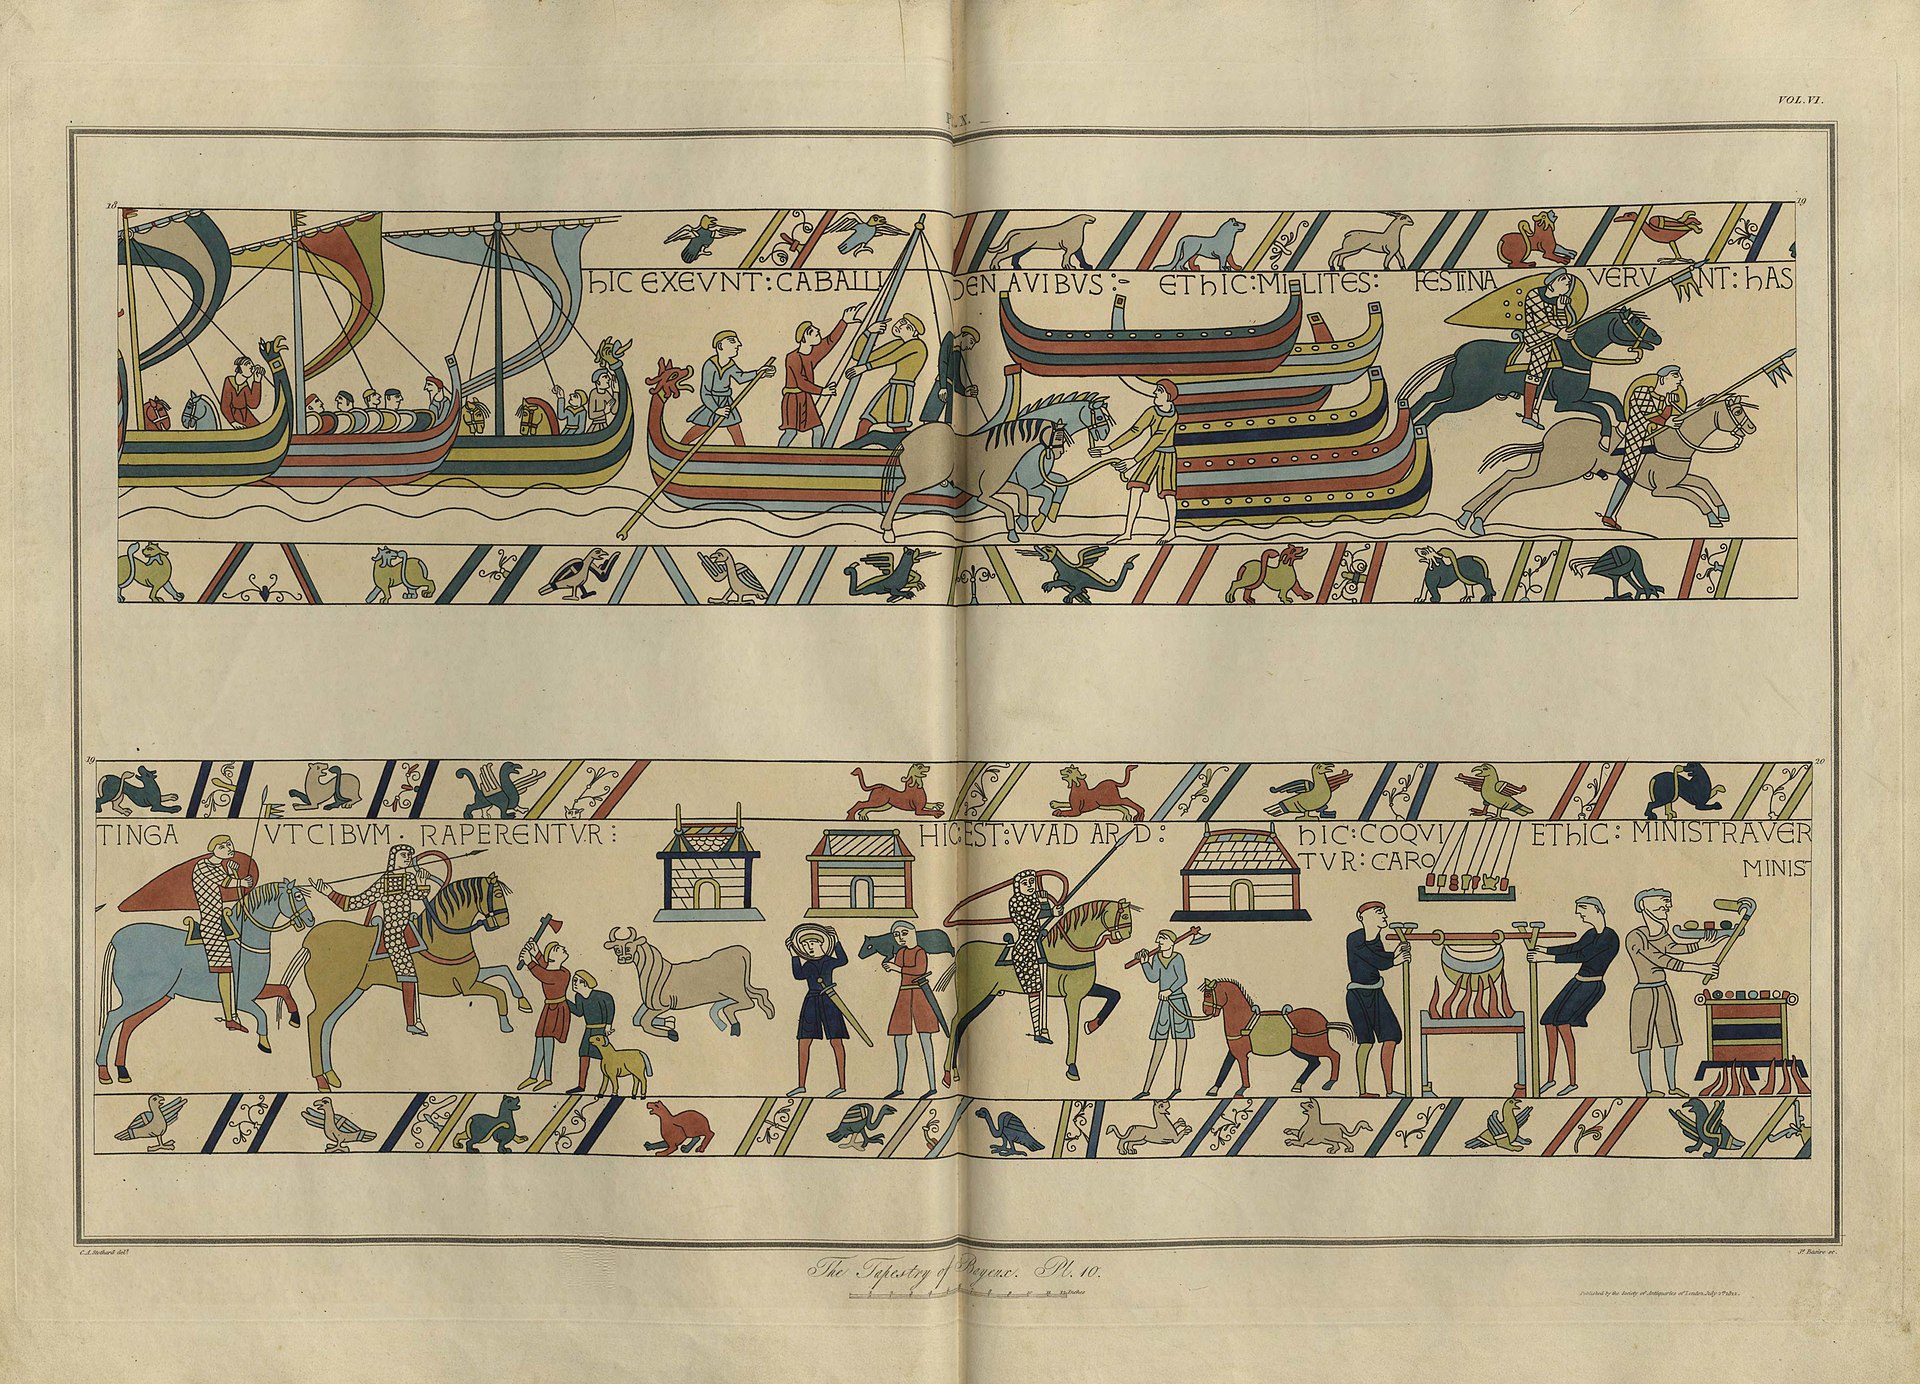 VOL. VI.
Pl. X.
18
19
hIC EXEVNT : CABALLI DENAVIBVS :- EThIC : MILITES : FESTINA VERV NT : hAS
19
20
TINGA VTCIBVM · RAPERENTVR :
HIC : EST : VVAD ARD :
hIC : COQVI
TVR : CARO
EThIC : MINISTRAVER
MINIS
C. A. Stothard delt.
Js. Basire sc.
The Tapestry of Bayeux. Pl. 10.
12 Inches
Published by the Society of Antiquaries of London, July